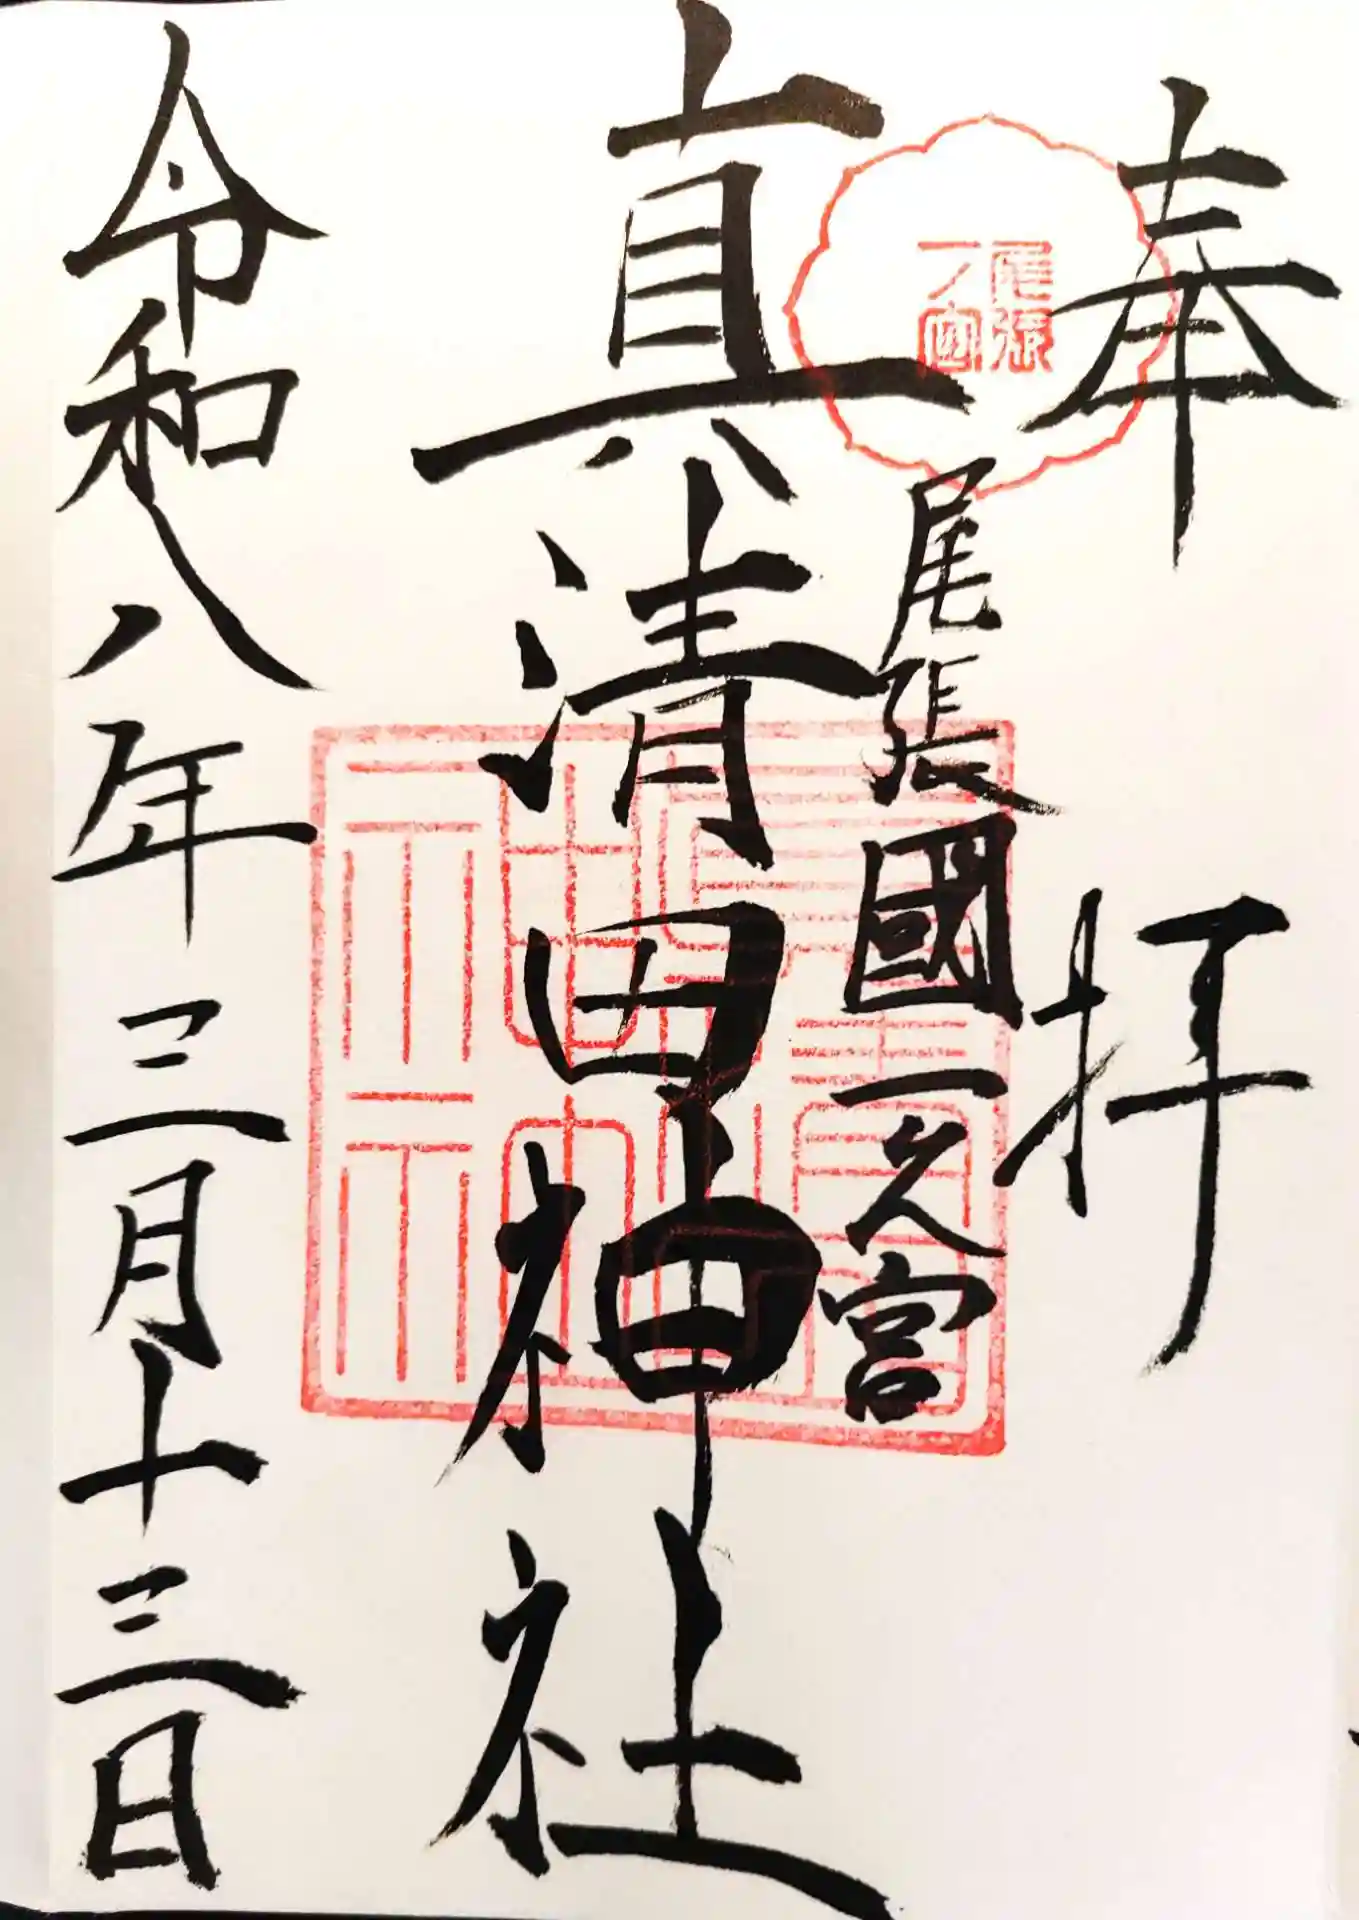 奉拝
尾張
一ノ宮
尾張國一之宮
真清田神社
令和八年三月十三日